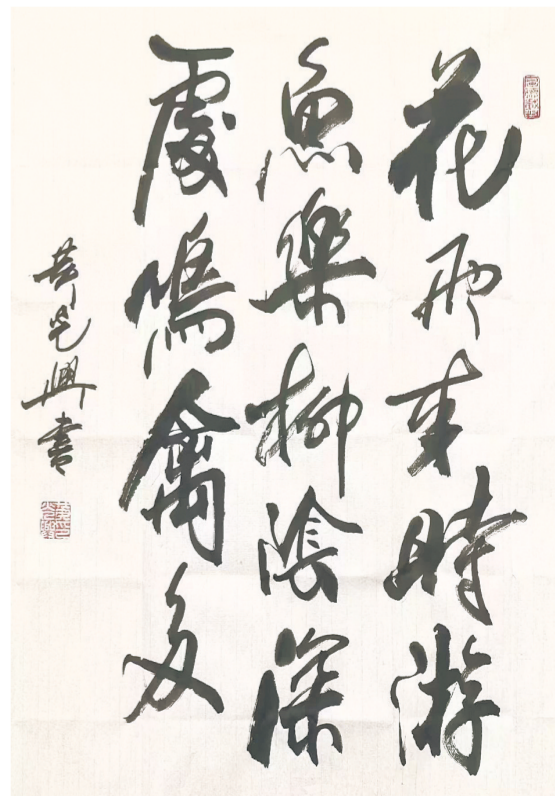 花雨来時游
魚樂柳陰深
處鳴禽多
光興書